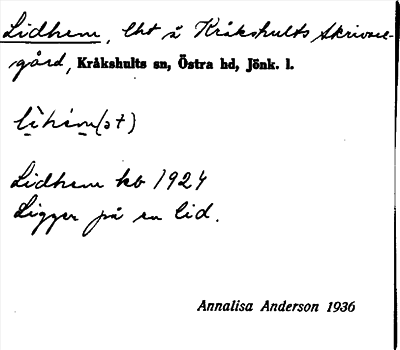 Lidhem, lht å Kråkshults Skrivare-
gård, Kråkshults sn, Östra hd, Jönk. l.
Lidhem kb 1924
Ligger på en lid.
Annalisa Anderson 1936